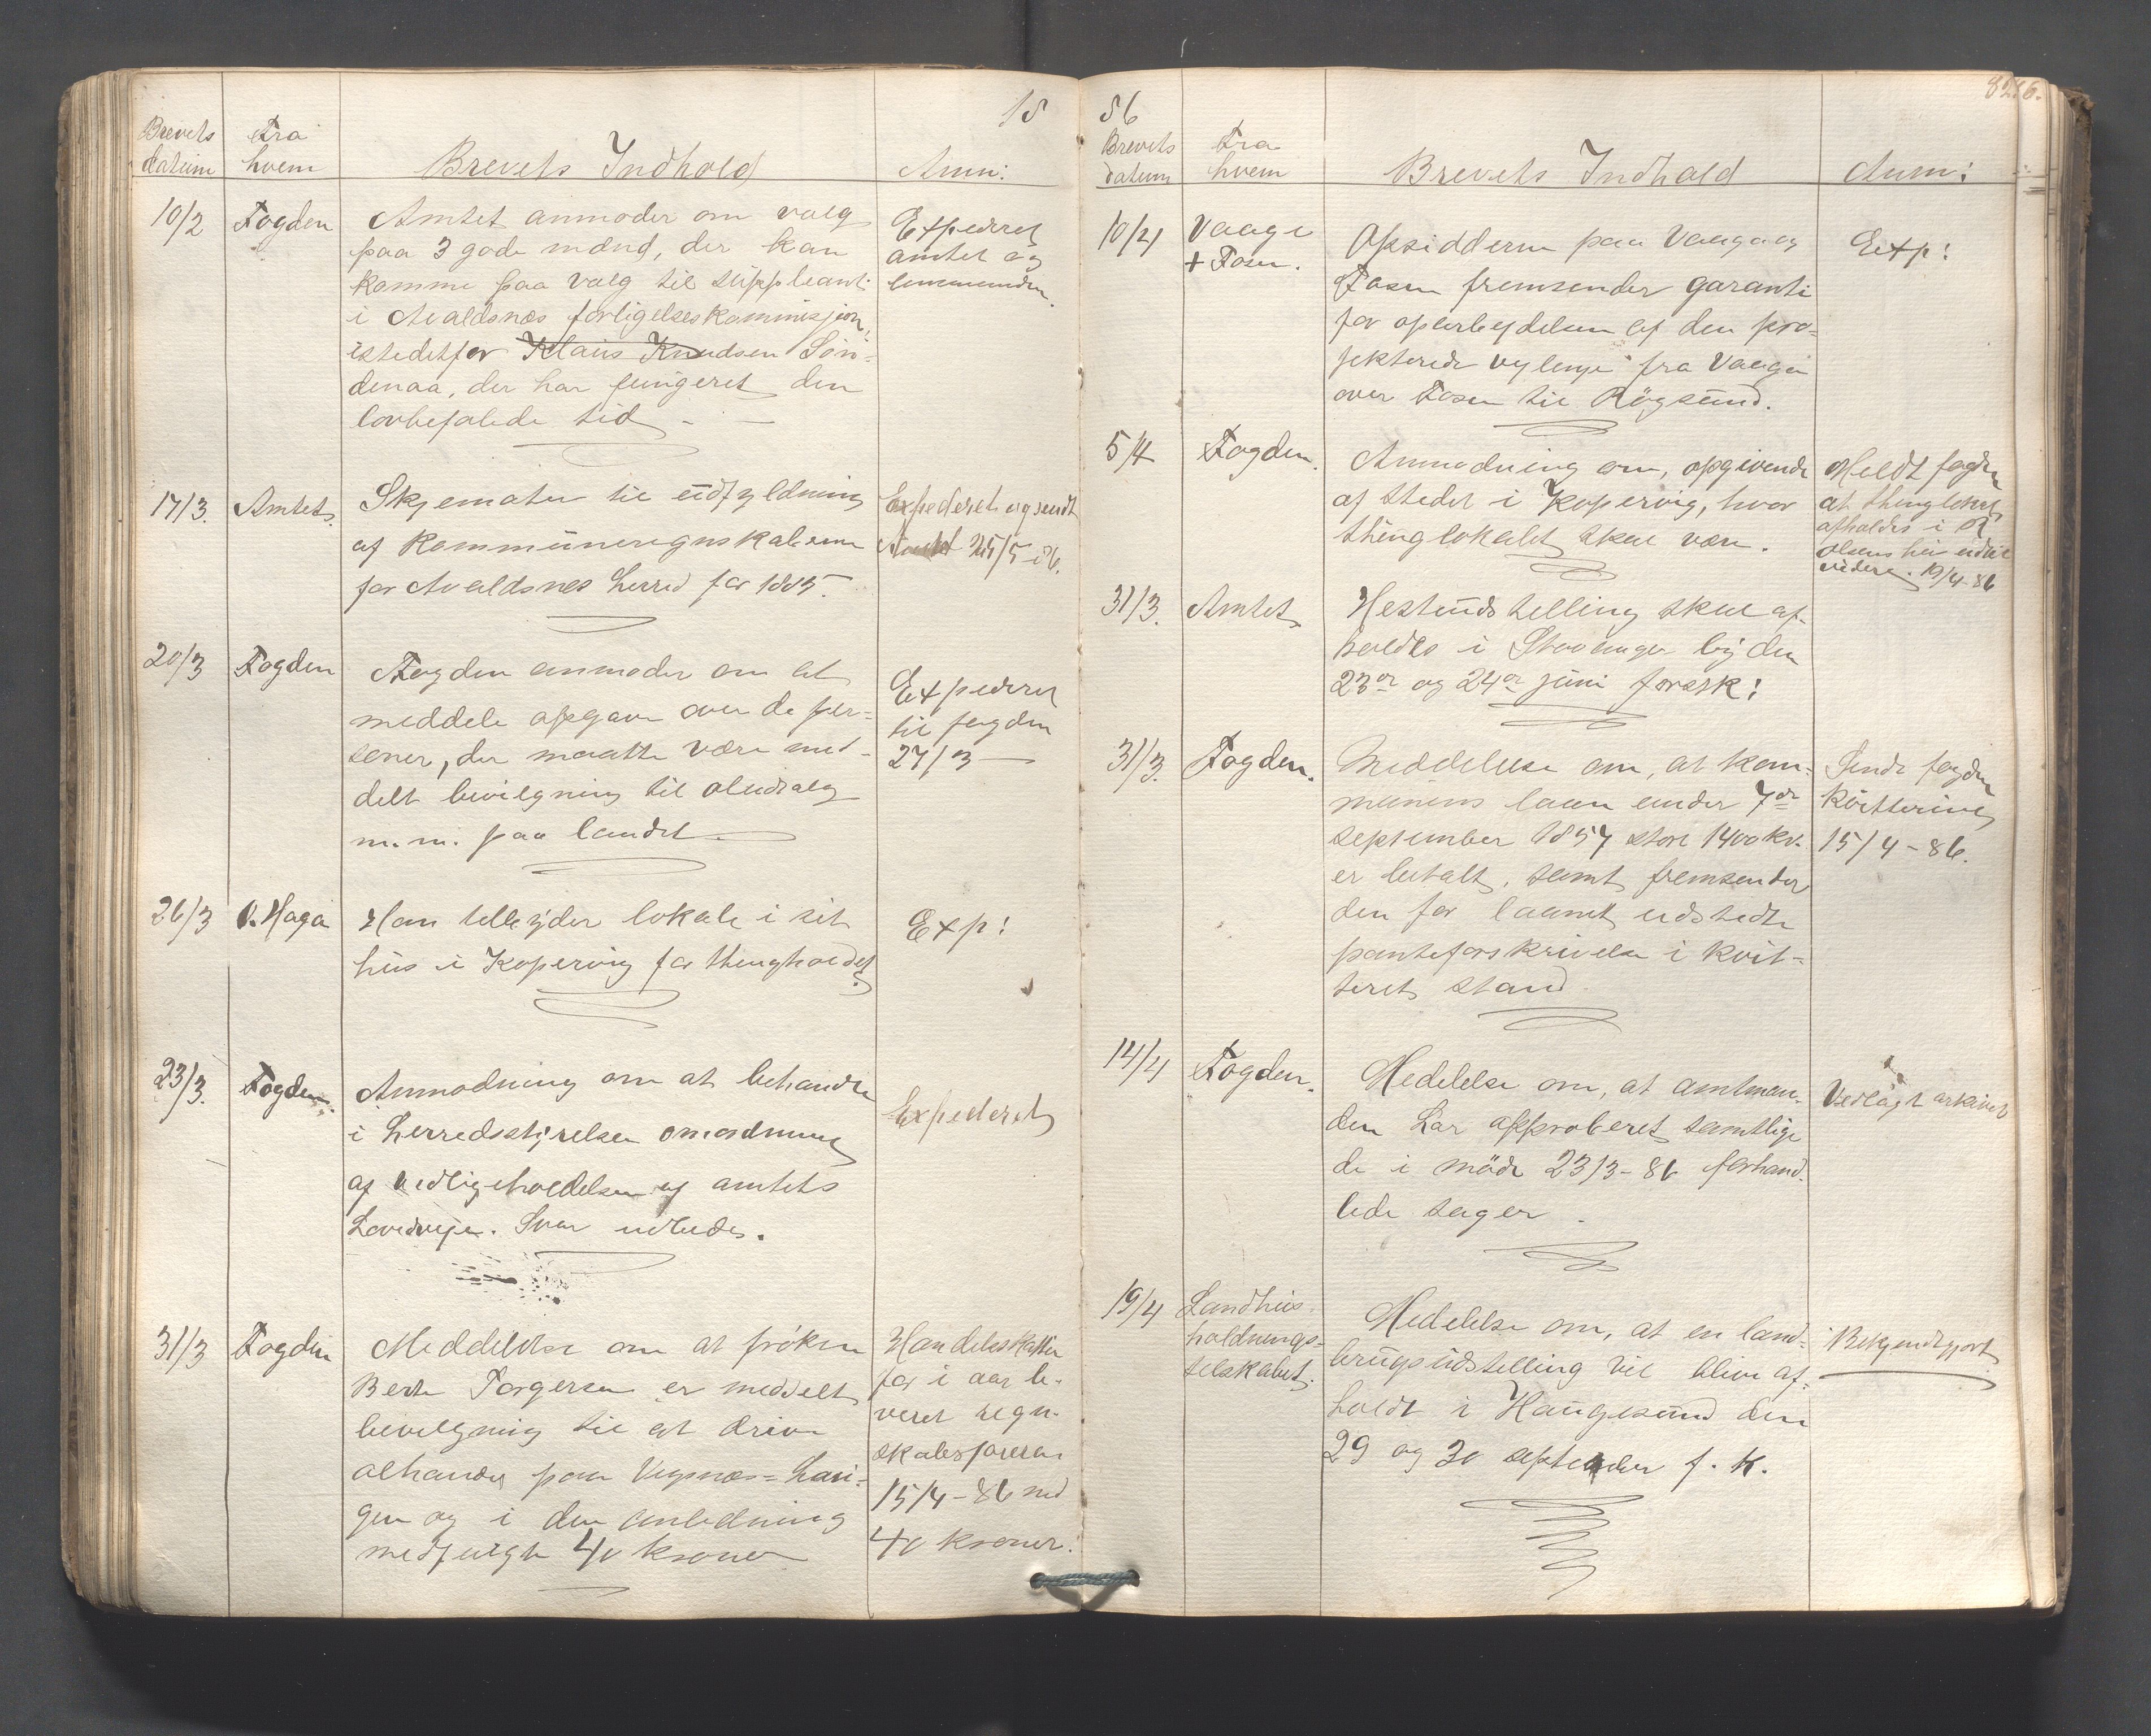 18
Brevets datum
Fra hvem
Brevets Indhold
Anm:
10/2
Fogden
Amtet anmoder om valg
paa 3 gode mænd, der kan
komme paa valg til suppleant
i Avaldsnæs forligelseskommisjon,
istedetfor Klaus Knudsen Søn-
denaa, der har fungeret den
lovbefalede tid
Expederet
amtet og
lensmanden.
17/3.
Amtet.
Skjemater til udfyldning
af kommuneregnskaberne
for Avaldsnes herred for 1885.
Expederet og sendt
Amtet 25/5-86.
20/3
Fogden
Fogden anmoder om at
meddele opgave over de per-
soner, der maatte være med-
delt bevilgning til øludsalg
m.m. paa landet
Expederet
til fogden
27/3
26/3
O. Haga
Han tilbyder lokale i sit
hus i Kopervig for thingholdet
Exp!
23/3.
Fogden.
Anmodning om at behandle
i herredsstyrelsen omordning
af vedligeholdelsen af amtets
hovedveje. Svar udbedes.
Expederet
31/3
Fogden
Meddelelse om at frøken
Berte Torgersen er meddelt
bevilgning til at drive
ølhandel paa Vigsnæs-havi-
gen og i den anledning
medfulgte 40 kroner
Handelsskatten
for i aar le-
veret regn-
skabsføreren
15/4-86 med
40 kroner.
86
826.
Brevets datum
Fra hvem
Brevets Indhold
Anm:
10/4
Vaage
+ Fosen.
Opsidderne paa Vaage og
Fosen fremsender garanti
for oparbeydelsen af den pro-
jekterede veylenje fra Vaage
over Fosen til Røgsund.
Exp!
5/4
Fogden.
Anmodning om, opgivende
af stedet i Kopervig, hvor
thinglokalet skal være.
Meldt fogden
at thinglokalet
afholdes i
Olsens hus indtil
videre. 19/4-86
31/3.
Amtet
Hesteudstelling skal af-
holdes i Stavanger by den
23de og 24de juni førstk:
31/3.
Fogden.
Meddelelse om, at kom-
munens laan under 7de
september 1857 stort 1400 kr.
er betalt, samt fremsender
den for laanet udstedte
panteforskrivelse i kvit-
teret stand
Sendt fogden
kvittering
15/4-86.
14/4
Fogden.
Medelelse om, at amtman-
den har approberet samtlige
de i møde 23/3-86 forhand-
lede sager.
Vedlagt arkivet
19/4
Landhus-
holdnings-
selskabet.
Medelelse om, at en land-
brugsudstelling vil blive af-
holdt i Haugesund den
29 og 30 september f. k.
Bekjendtgjort